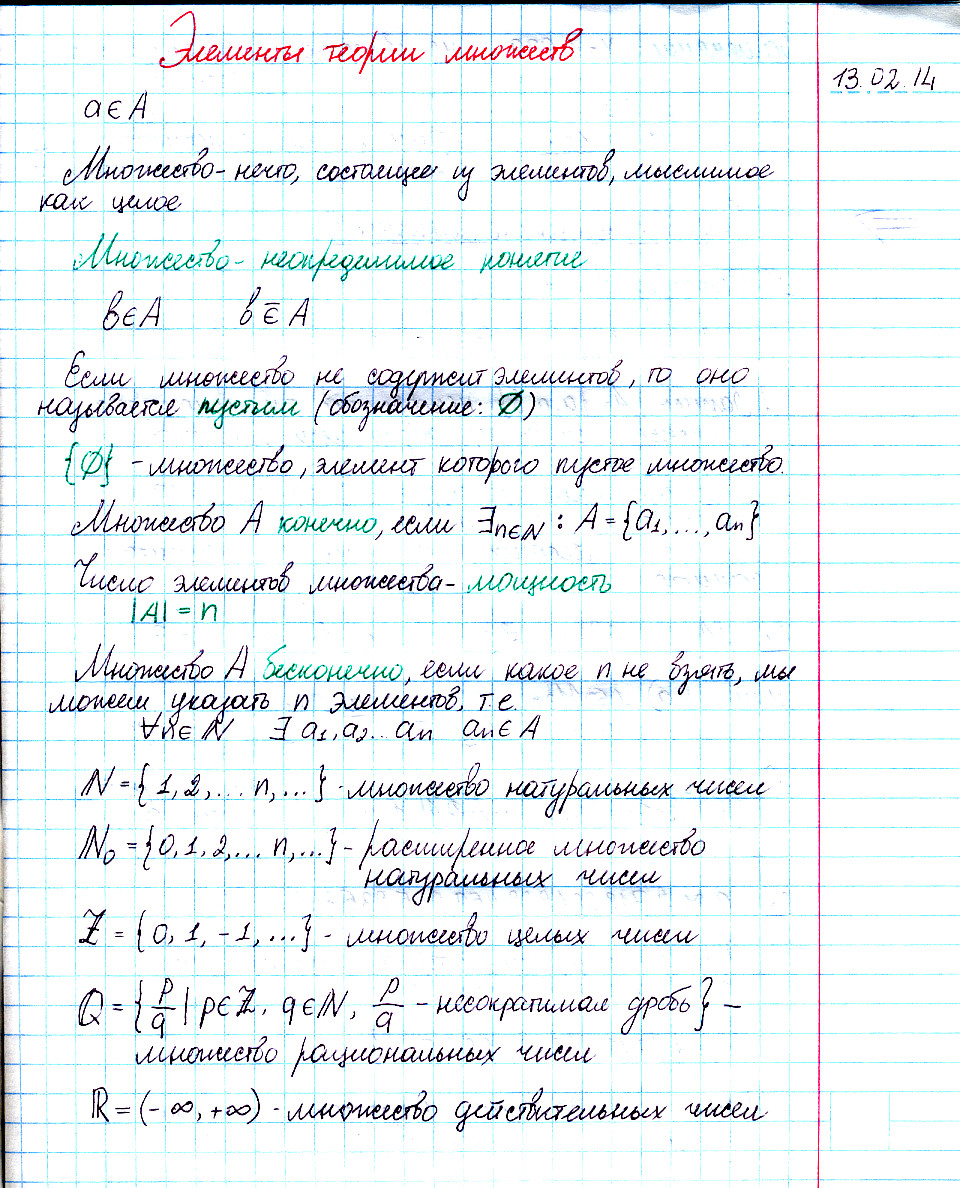 Элементы теории множеств
13.02.14
a ∈ A
Множество - нечто, состоящее из элементов, мыслимое
как целое
Множество - неопределимое понятие
в ∈ A в ∈̅ A
Если множество не содержит элементов, то оно
называется пустым (обозначение: Ø)
{Ø} - множество, элемент которого пустое множество.
Множество A конечно, если ∃n∈N : A = {a₁, ..., aₙ}
Число элементов множества - мощность
|A| = n
Множество A бесконечно, если какое n не взять, мы
можем указать n элементов, т.е.
∀n ∈ N ∃ a₁, a₂... aₙ aₙ ∈ A
N = {1, 2, ... n, ...} - множество натуральных чисел
N₀ = {0, 1, 2, ... n, ...} - расширенное множество
натуральных чисел
ℤ = {0, 1, -1, ...} - множество целых чисел
Q = {p/q | p ∈ ℤ, q ∈ N, p/q - несократимая дробь} -
множество рациональных чисел
ℝ = (-∞, +∞) - множество действительных чисел